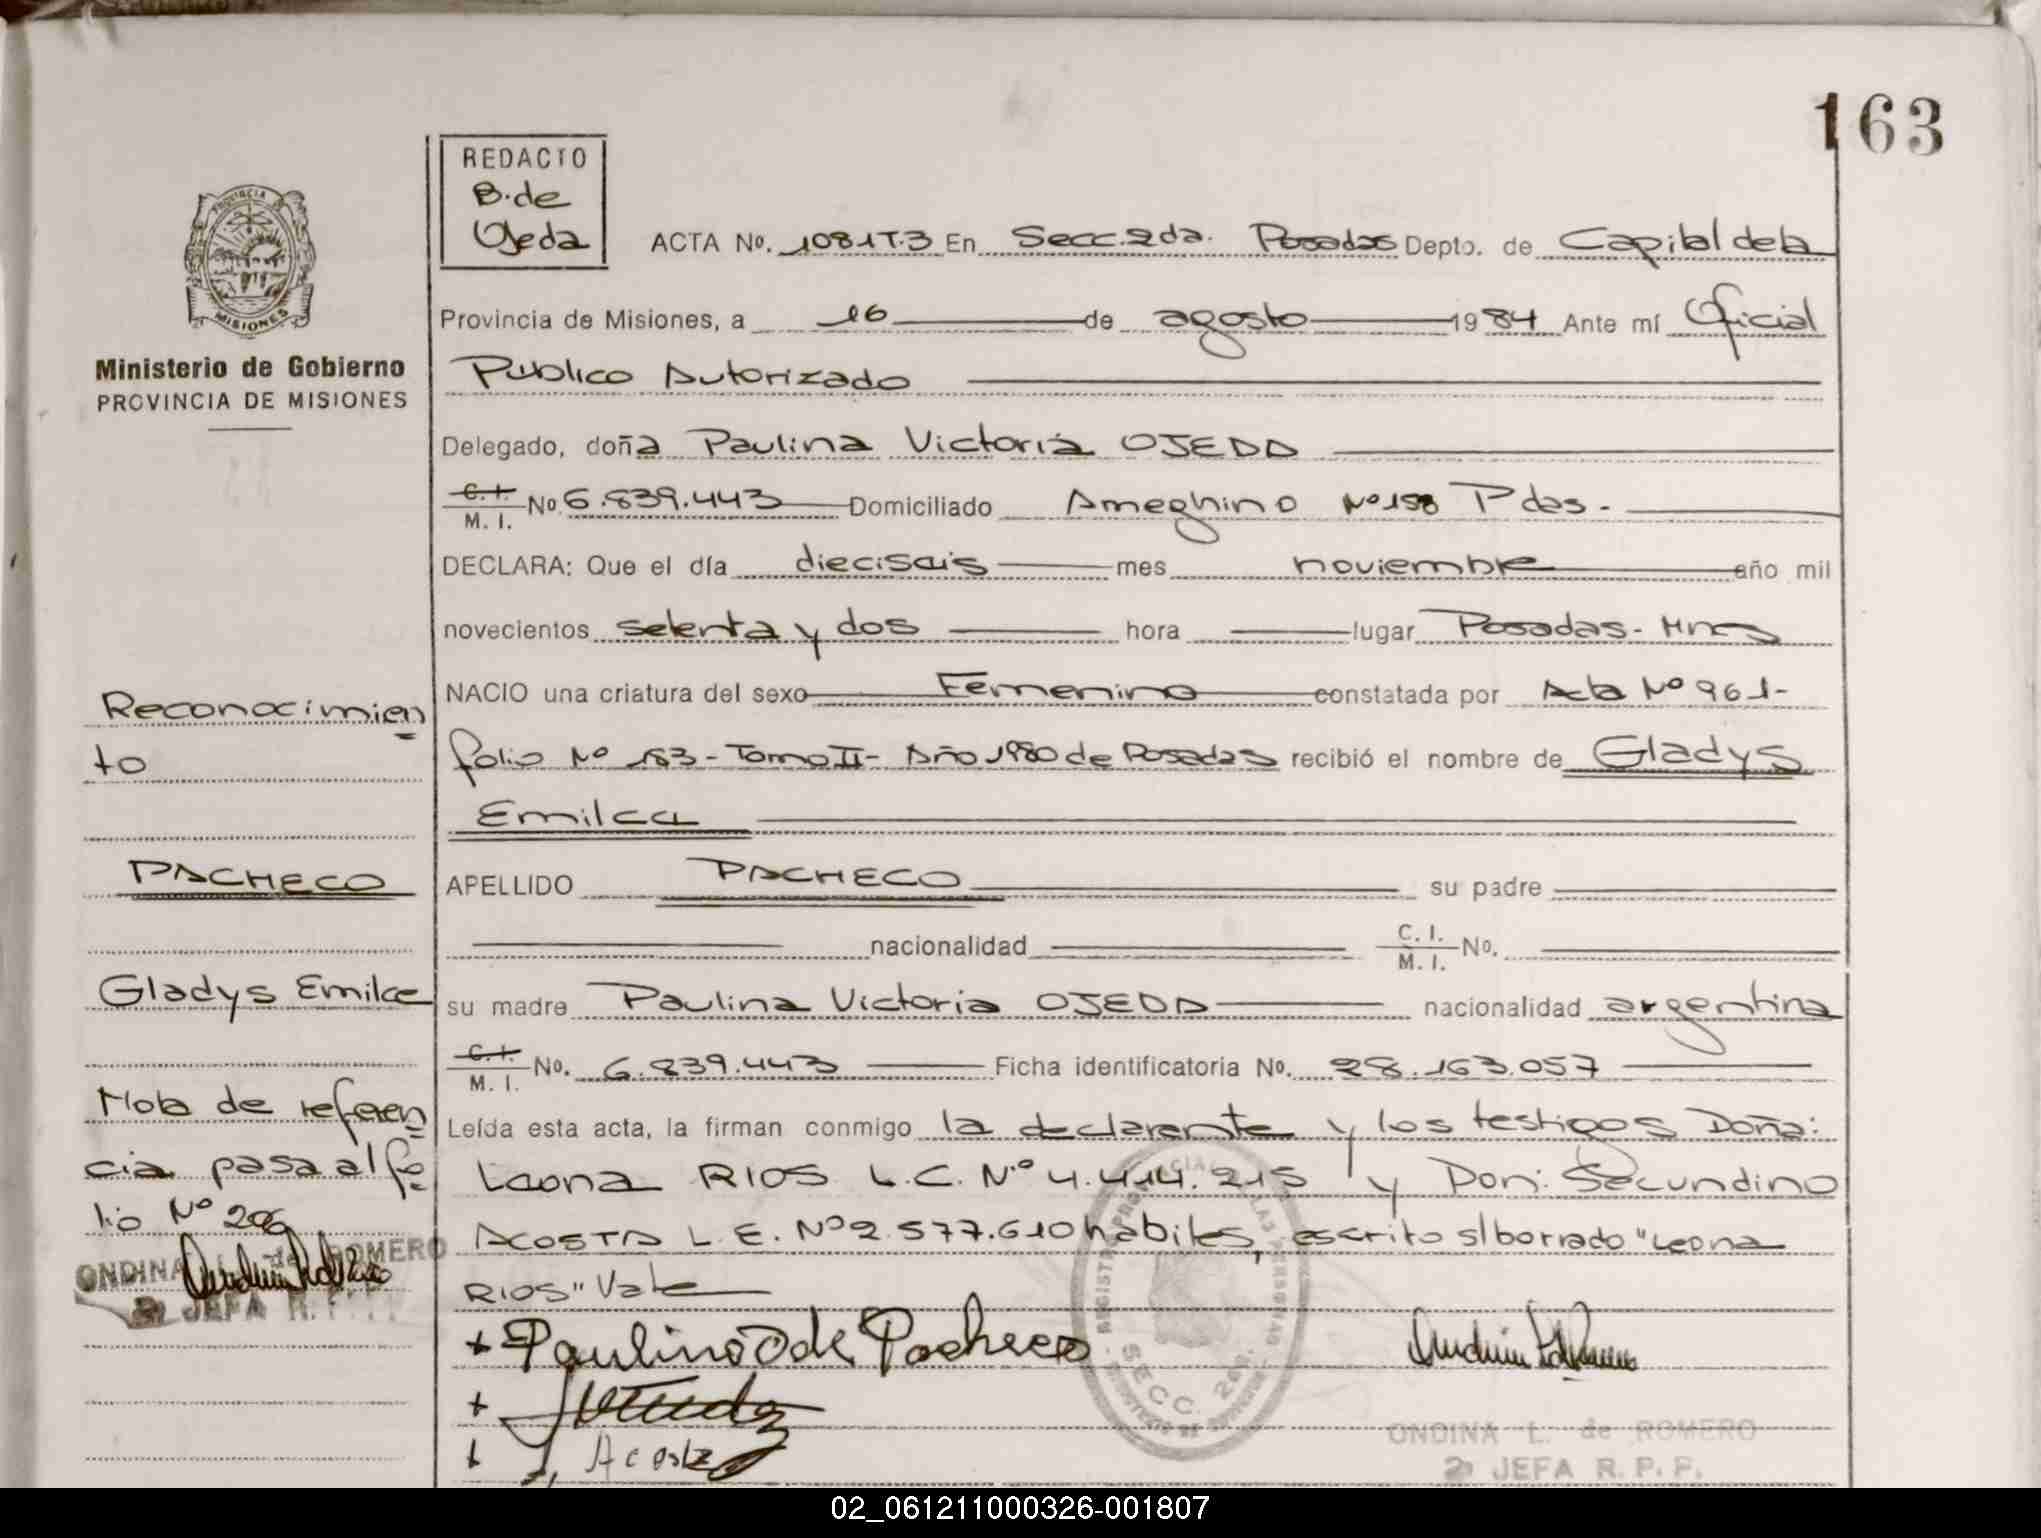 163
REDACTO
B. de
Ojeda
ACTA No. 1081 T.3 En Secc. 2da. Posadas Depto. de Capital de la
PROVINCIA DE
MISIONES
Provincia de Misiones, a 16 de agosto 1984 Ante mí Oficial
Ministerio de Gobierno
PROVINCIA DE MISIONES
Publico Autorizado
Delegado, doña Paulina Victoria OJEDA
C. I. M. I. No. 6.839.443 Domiciliado Ameghino Nº 158 Pdas.
DECLARA: Que el día dieciseis mes noviembre año mil
novecientos setenta y dos hora lugar Posadas - Mnes
NACIO una criatura del sexo Femenino constatada por Acta Nº 961-
folio Nº 183 - Tomo II - Año 1980 de Posadas recibió el nombre de Gladys
Emilce
APELLIDO PACHECO su padre
nacionalidad C. I. M. I. No.
su madre Paulina Victoria OJEDA nacionalidad argentina
C. I. M. I. No. 6.839.443 Ficha identificatoria No. 28.163.057
Leída esta acta, la firman conmigo la declarante y los testigos Doña:
Leona RIOS L.C. Nº 4.414.215 y Don: Secundino
ACOSTA L.E. Nº 2.577.610 habiles, escrito s/borrado "Leona
RIOS" Vale
Reconocimien
to
PACHECO
Gladys Emilce
Nota de referen
cia pasa al fo
lio Nº 206
ONDINA L. de ROMERO
JEFA R. P. P.
+ Paulina O de Pacheco
+
+ Acosta
SECC. 2da.
ONDINA L. de ROMERO
JEFA R. P. P.
02_061211000326-001807